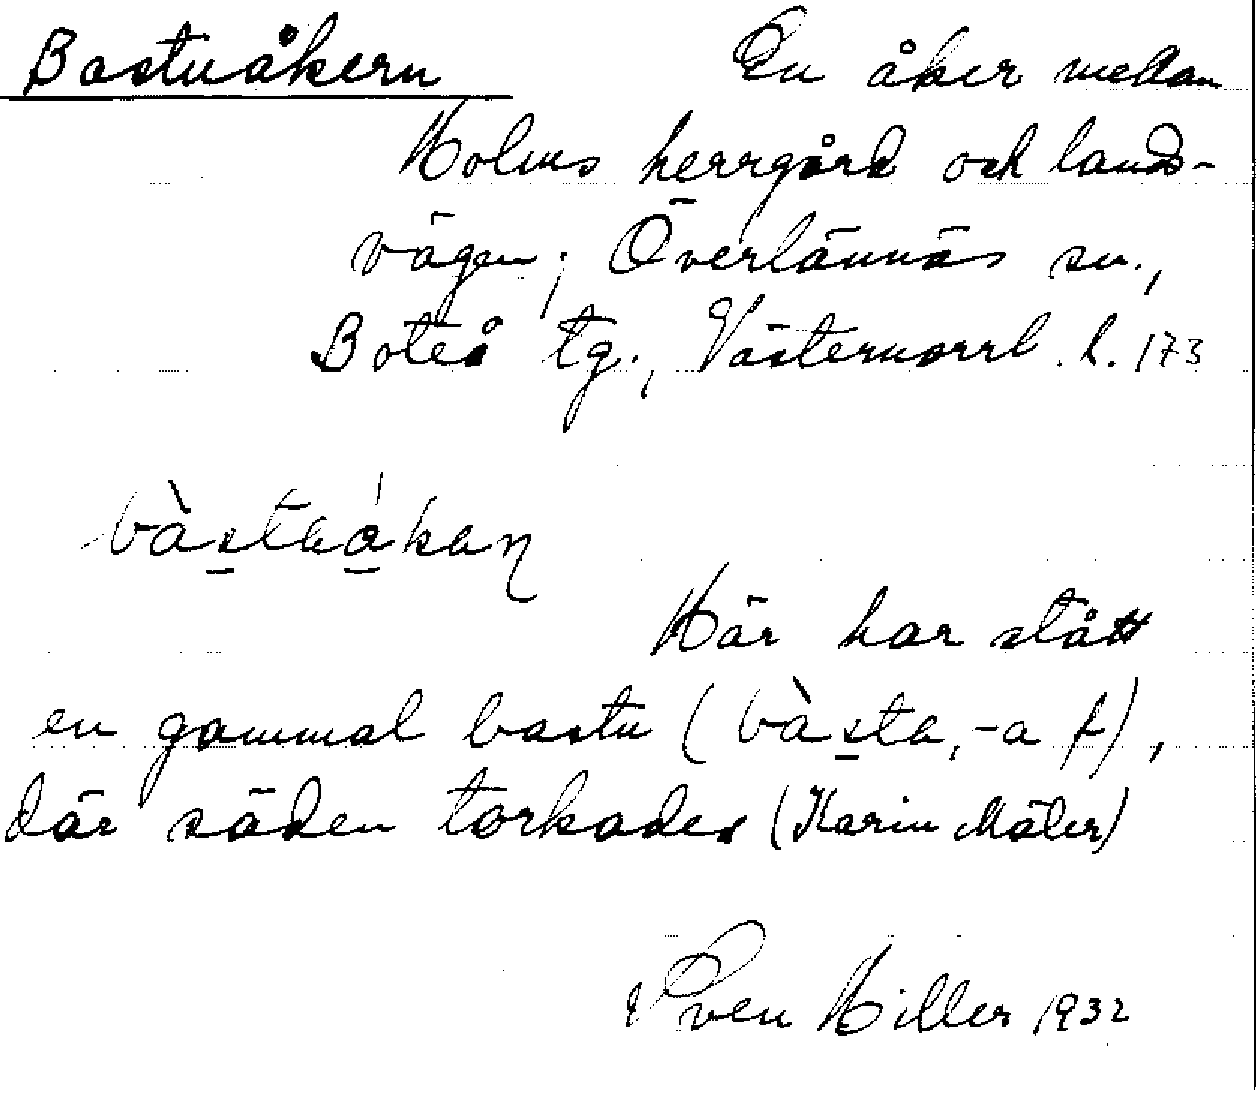 Bastuåkern En åker mellan
Holms herrgård och lands-
vägen; Överlännäs sn.,
Boteå tg., Västernorrl. l. 173
bàstaåkaŋ
Här har stått
en gammal bastu (bàsta, -a f),
där säden torkades (Karin Mäler)
Sven Hiller 1932